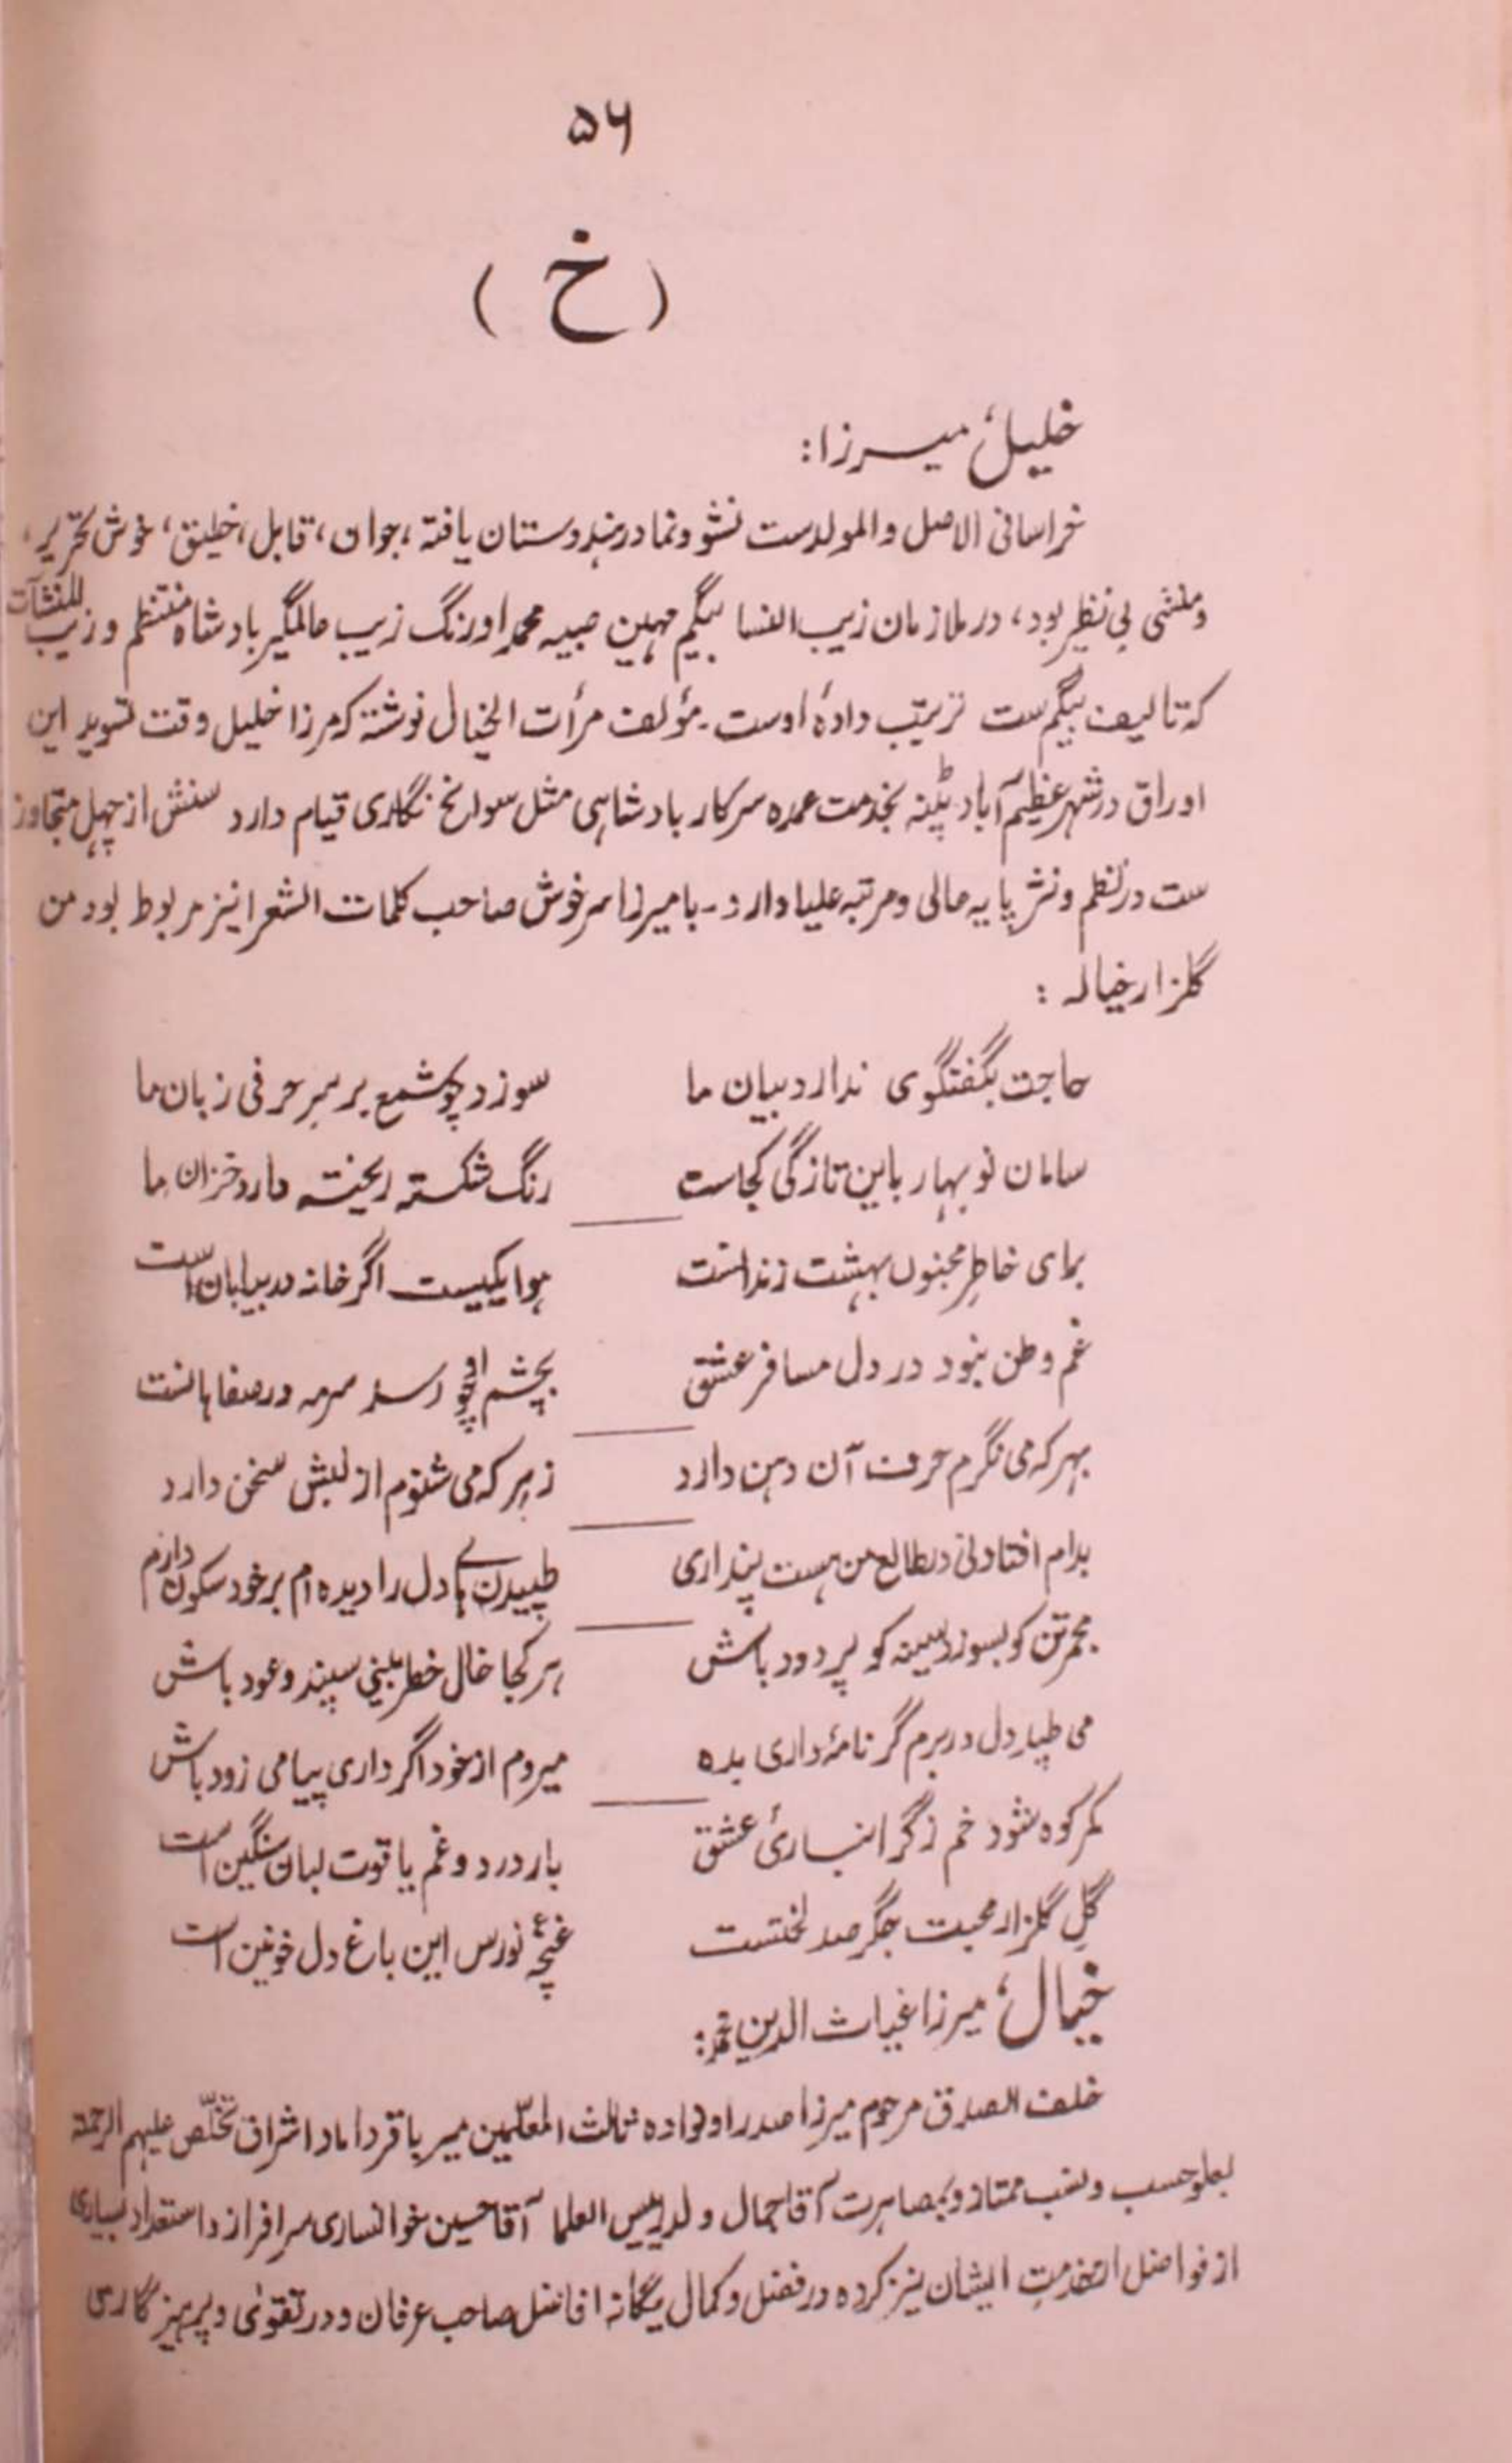 ۵۶
( خ )
خلیل، میرزا:
خراسانی الاصل والمولدست نشو و نما در ہندوستان یافتہ، جوان، قابل، خلیق، خوش تحریر،
و منشی بی نظیر بود، در ملازمان زیب النسا بیگم مہین صبیہ محمد اورنگ زیب عالمگیر بادشاہ منتظم و زیب المنشآت
کہ تالیف بیگم ست ترتیب دادۂ اوست۔ مؤلف مرأت الخیال نوشتہ کہ مرزا خلیل وقت تسوید این
اوراق در شہر عظیم آباد پٹنہ بخدمت عمدہ سرکار بادشاہی مثل سوانح نگاری قیام دارد سنش از چہل متجاوز
ست در نظم و نثر پایہ عالی و مرتبہ علیا دارد۔ با میرزا سرخوش صاحب کلمات الشعرا نیز مربوط بود من
گلزار خیالہ :
حاجت بگفتگوی ندارد بیان ما سوزد چو شمع بر سرِ حرفی زبان ما
سامان نو بہار باین تازگی کجاست رنگ شکستہ ریختہ دارد خزان ما
برای خاطرِ مجنوں بہشت زندانست ہوا یکیست اگر خانہ در بیابان است
غم وطن نبود در دل مسافر عشق بچشم او چو رسد سرمہ در صفاہانست
بہر کہ می نگرم حرف آن دہن دارد ز ہر کہ می شنوم از لبش سخن دارد
بدام افتادنی در طالع من ہست پنداری طپیدن ہاے دل را دیدہ ام بر خود سکون دارم
مجمر تن کو بسوز و سینہ کو پر دود باش ہر کجا خال خطر بینی سپند و عود باش
می طپد دل در برم گر نامۂ داری بدہ میروم از خود اگر داری پیامی زود باش
کمر کوہ شود خم ز گرانباریٔ عشق بار درد و غم یاقوت لبان سنگین است
گلِ گلزار محبت جگر صد لختست غنچۂ نورس این باغ دل خونین است
خیال، میرزا غیاث الدین محمد:
خلف الصدق مرحوم میرزا صدرا و نوادہ ثالث المعلّمین میر باقر داماد اشراق تخلّص علیہم الرحمۃ
بعلو حسب و نسب ممتاز و بمصاہرت آقا جمال ولد رییس العلما آقا حسین خوانساری سرافراز و استعداد بسیاری
از فواضل از خدمتِ ایشان نیز کردہ در فضل و کمال یگانہ افاضل صاحب عرفان و در تقوٰی و پرہیزگاری